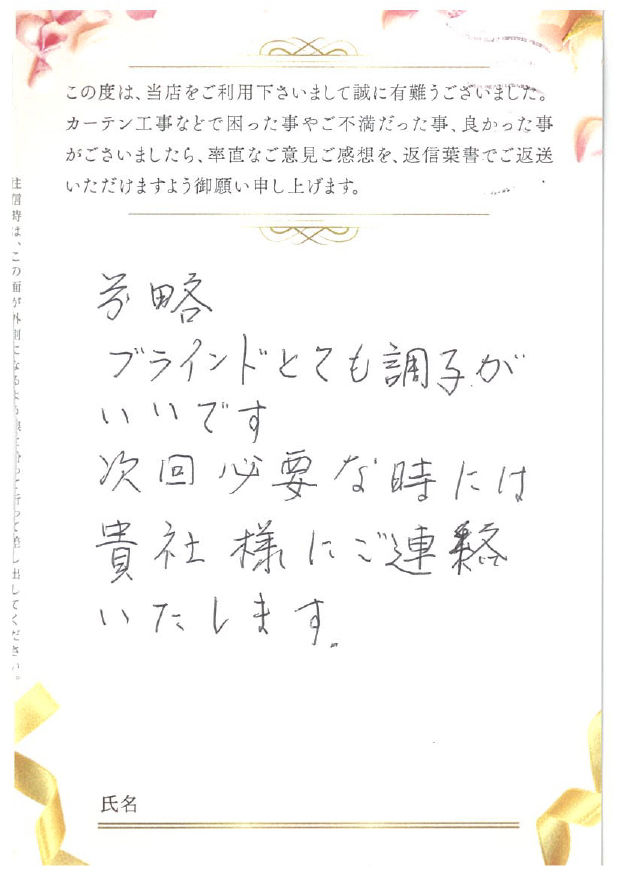 この度は、当店をご利用下さいまして誠に有難うございました。
カーテン工事などで困った事やご不満だった事、良かった事
がございましたら、率直なご意見ご感想を、返信葉書でご返送
いただけますよう御願い申し上げます。
前略
ブラインドとても調子が
いいです
次回必要な時には
貴社様にご連絡
いたします。
氏名